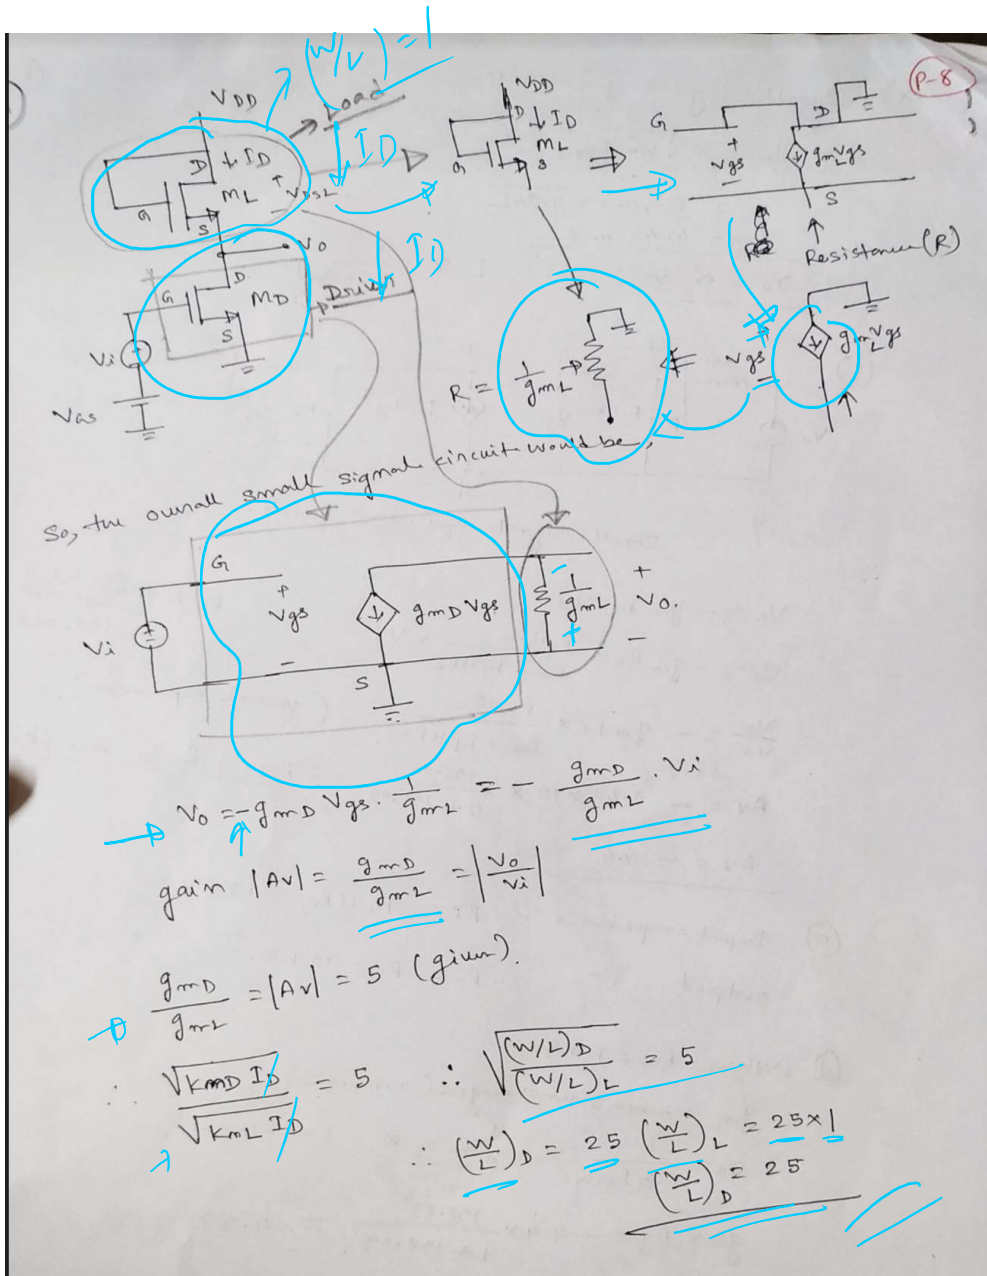 P-8
(W/L) = 1
VDD
Load
ID
D
ID
ML
G
S
+
VDSL
-
Vo
ID
D
G
MD
S
Driver
Vi
VGS
VDD
D
ID
ML
G
S
G
D
+
Vgs
-
gmLVgs
S
Resistance (R)
R = 1/gmL
Vgs
gmLVgs
So, the overall small signal circuit would be,
G
+
Vgs
-
gmD Vgs
S
Vi
-
1/gmL
+
+
Vo.
-
Vo = -gmD Vgs . 1/gmL = - gmD/gmL . Vi
gain |Av| = gmD/gmL = |Vo/Vi|
gmD/gmL = |Av| = 5 (given).
∴ √KmD ID / √KmL ID = 5 ∴ √(W/L)D/(W/L)L = 5
∴ (W/L)D = 25 (W/L)L = 25×1
(W/L)D = 25